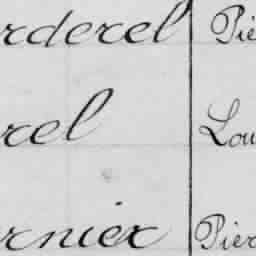 rderel Pie
rel Lou
rnier Pier